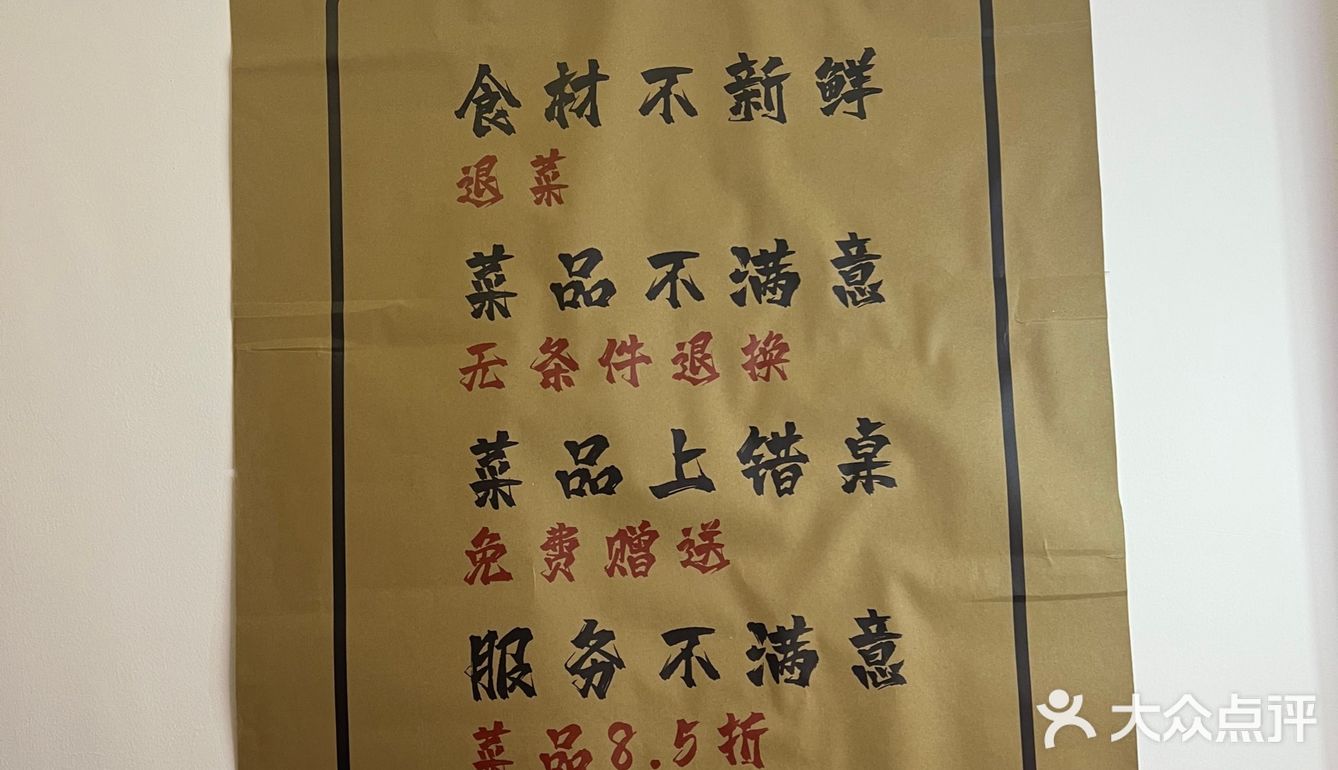 食材不新鲜
退菜
菜品不满意
无条件退换
菜品上错桌
免费赠送
服务不满意
菜品8.5折
大众点评